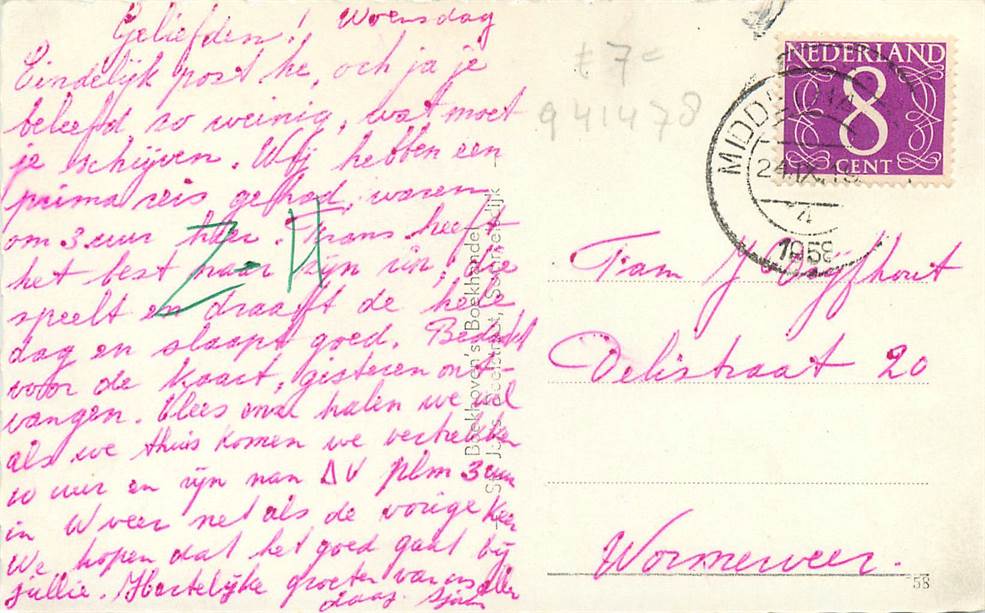 Geliefden! Woensdag
Eindelijk post he, och ja je
beleefd zo weinig, wat moet
je schijven. Wij hebben een
prima reis gehad, waren
om 3 uur hier. Frans heeft
het best naar zijn zin, die
speelt en draaft de hele
dag en slaapt goed. Bedankt
voor de kaart, gisteren ont-
vangen. Vlees enz halen we wel
als we thuis komen we vertrekken
10 uur en zijn plm 3 uur
in W veer net als de vorige keer
We hopen dat het goed gaat bij
jullie. Hartelijke groeten van ons allen
daag
Z-H
Boekhoven's Boekhandel
£ 7c
941478
NEDERLAND
8
CENT
MIDD
24.IX.19
4
1959
Fam J
Delistraat 20
Wormerveer.
58